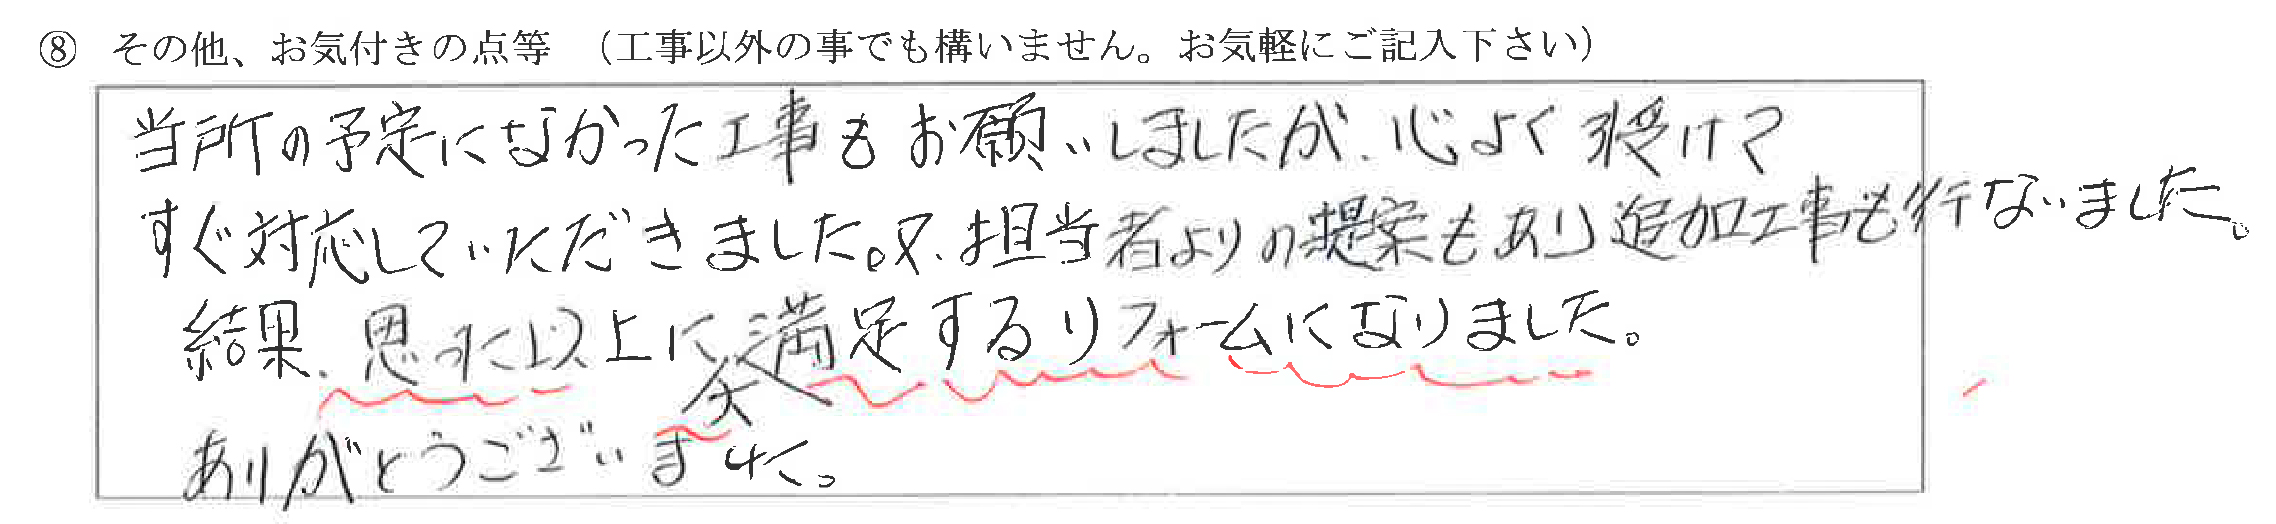 ⑧ その他、お気付きの点等 （工事以外の事でも構いません。お気軽にご記入下さい）
当所の予定になかった工事もお願いしましたが、心よく受けて
すぐ対応していただきました。又、担当者よりの提案もあり追加工事も行ないました。
結果、思った以上に大満足するリフォームになりました。
ありがとうございました。